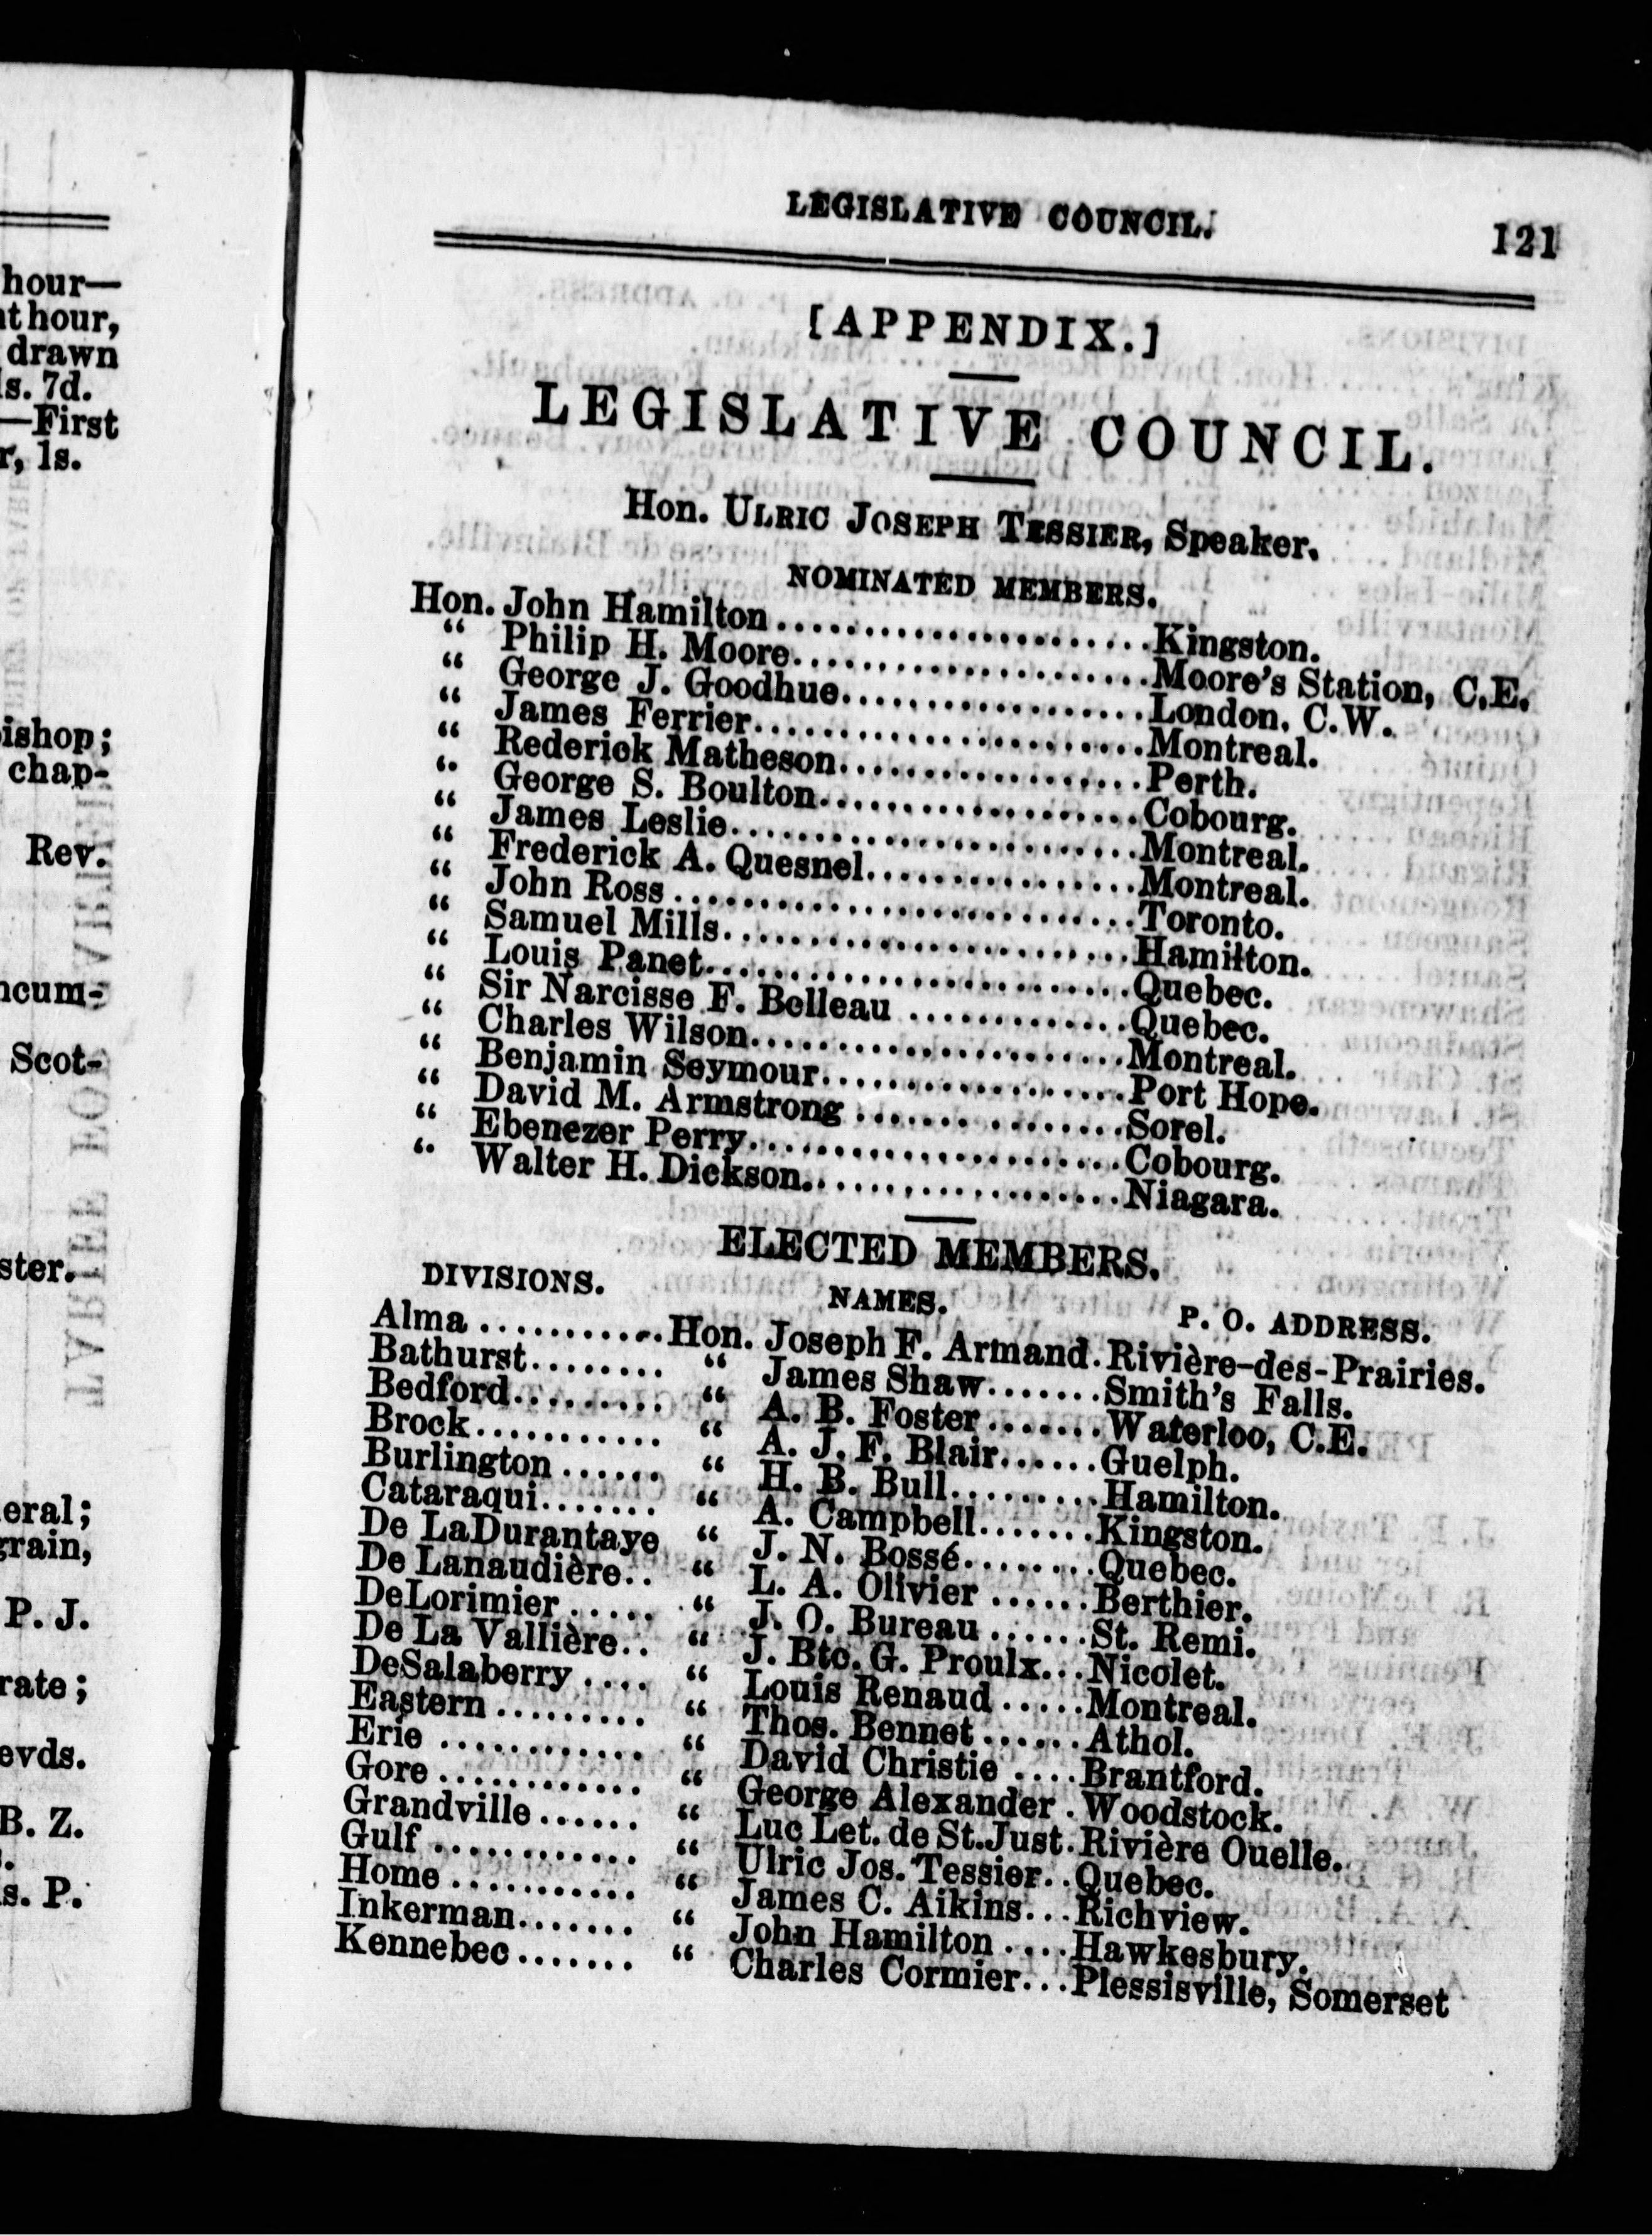 hour—
at hour,
drawn
s. 7d.
—First
r, 1s.
ishop;
chap-
Rev.
ncum-
Scot-
ster.
eral;
grain,
P. J.
rate;
evds.
B. Z.
s. P.
LEGISLATIVE COUNCIL.
121
[APPENDIX.]
LEGISLATIVE COUNCIL.
Hon. ULRIC JOSEPH TESSIER, Speaker.
NOMINATED MEMBERS.
Hon. John Hamilton......................Kingston.
“ Philip H. Moore.....................Moore's Station, C.E.
“ George J. Goodhue..................London, C.W.
“ James Ferrier.......................Montreal.
“ Rederick Matheson..................Perth.
“ George S. Boulton...................Cobourg.
“ James Leslie........................Montreal.
“ Frederick A. Quesnel................Montreal.
“ John Ross...........................Toronto.
“ Samuel Mills........................Hamilton.
“ Louis Panet.........................Quebec.
“ Sir Narcisse F. Belleau .............Quebec.
“ Charles Wilson......................Montreal.
“ Benjamin Seymour..................Port Hope.
“ David M. Armstrong ................Sorel.
“ Ebenezer Perry......................Cobourg.
“ Walter H. Dickson...................Niagara.
ELECTED MEMBERS.
DIVISIONS. NAMES. P. O. ADDRESS.
Alma ...........Hon. Joseph F. Armand.Rivière-des-Prairies.
Bathurst........ “ James Shaw.......Smith's Falls.
Bedford......... “ A. B. Foster.......Waterloo, C.E.
Brock........... “ A. J. F. Blair......Guelph.
Burlington...... “ H. B. Bull.........Hamilton.
Cataraqui....... “ A. Campbell.......Kingston.
De LaDurantaye “ J. N. Bossé........Quebec.
De Lanaudière.. “ L. A. Olivier ......Berthier.
DeLorimier..... “ J. O. Bureau ......St. Remi.
De La Vallière.. “ J. Bte. G. Proulx...Nicolet.
DeSalaberry.... “ Louis Renaud......Montreal.
Eastern......... “ Thos. Bennet......Athol.
Erie ............ “ David Christie ....Brantford.
Gore............ “ George Alexander.Woodstock.
Grandville...... “ Luc Let. de St.Just.Rivière Ouelle.
Gulf ............ “ Ulric Jos. Tessier..Quebec.
Home........... “ James C. Aikins...Richview.
Inkerman....... “ John Hamilton....Hawkesbury.
Kennebec....... “ Charles Cormier...Plessisville, Somerset